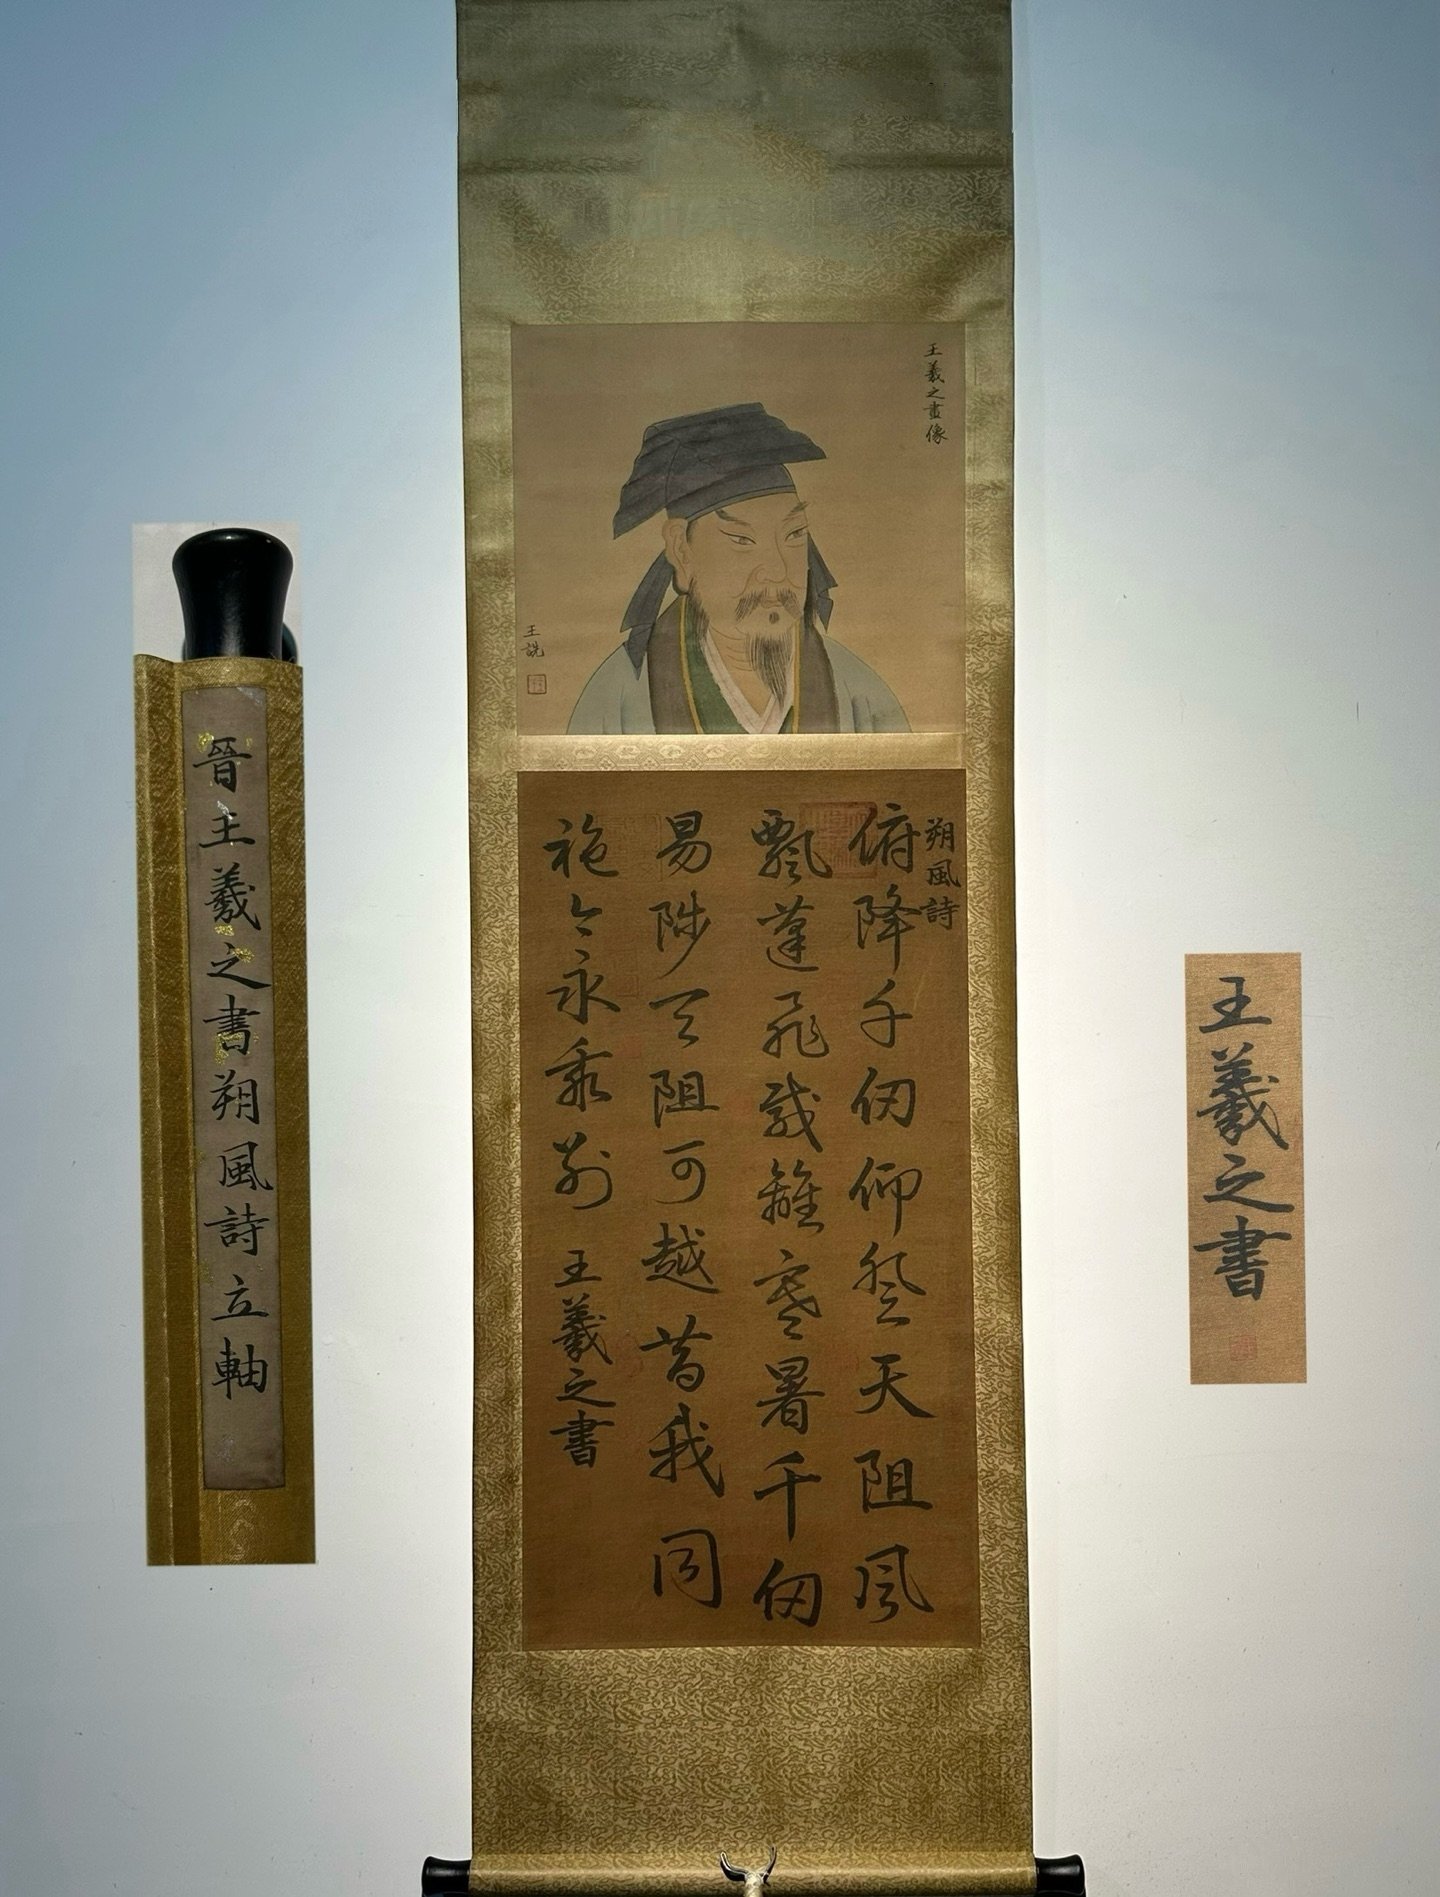 王羲之畫像
王詵
朔風詩
俯降千仞仰登天阻風
飄蓬飛載離寒暑千仞
易陟天阻可越昔我同
袍今永乖別
王羲之書
晉王羲之書朔風詩立軸
王羲之書